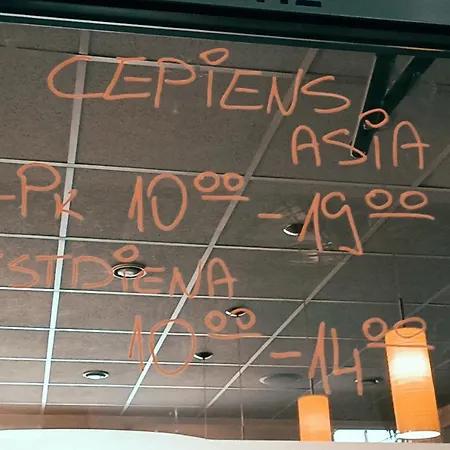 CEPIENS
ASIA
-Pk 10⁰⁰ - 19⁰⁰
ESTDIENA
10⁰⁰ - 14⁰⁰